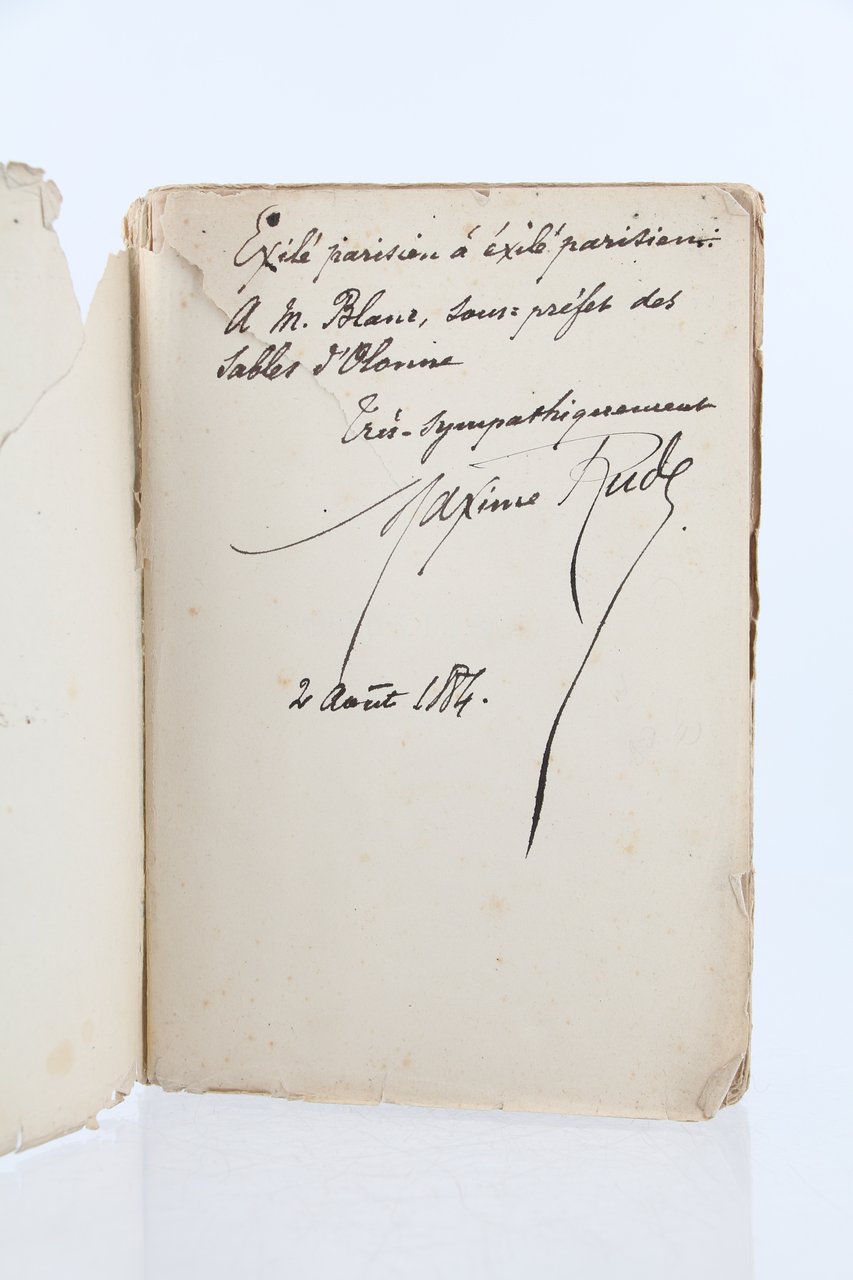 Exilé parisien à éxilé parisien:
A M. Blanc, sous=préfet des
Sables d'Olonne
Très-sympathiquement
Maxime Rude.
2 Août 1884.